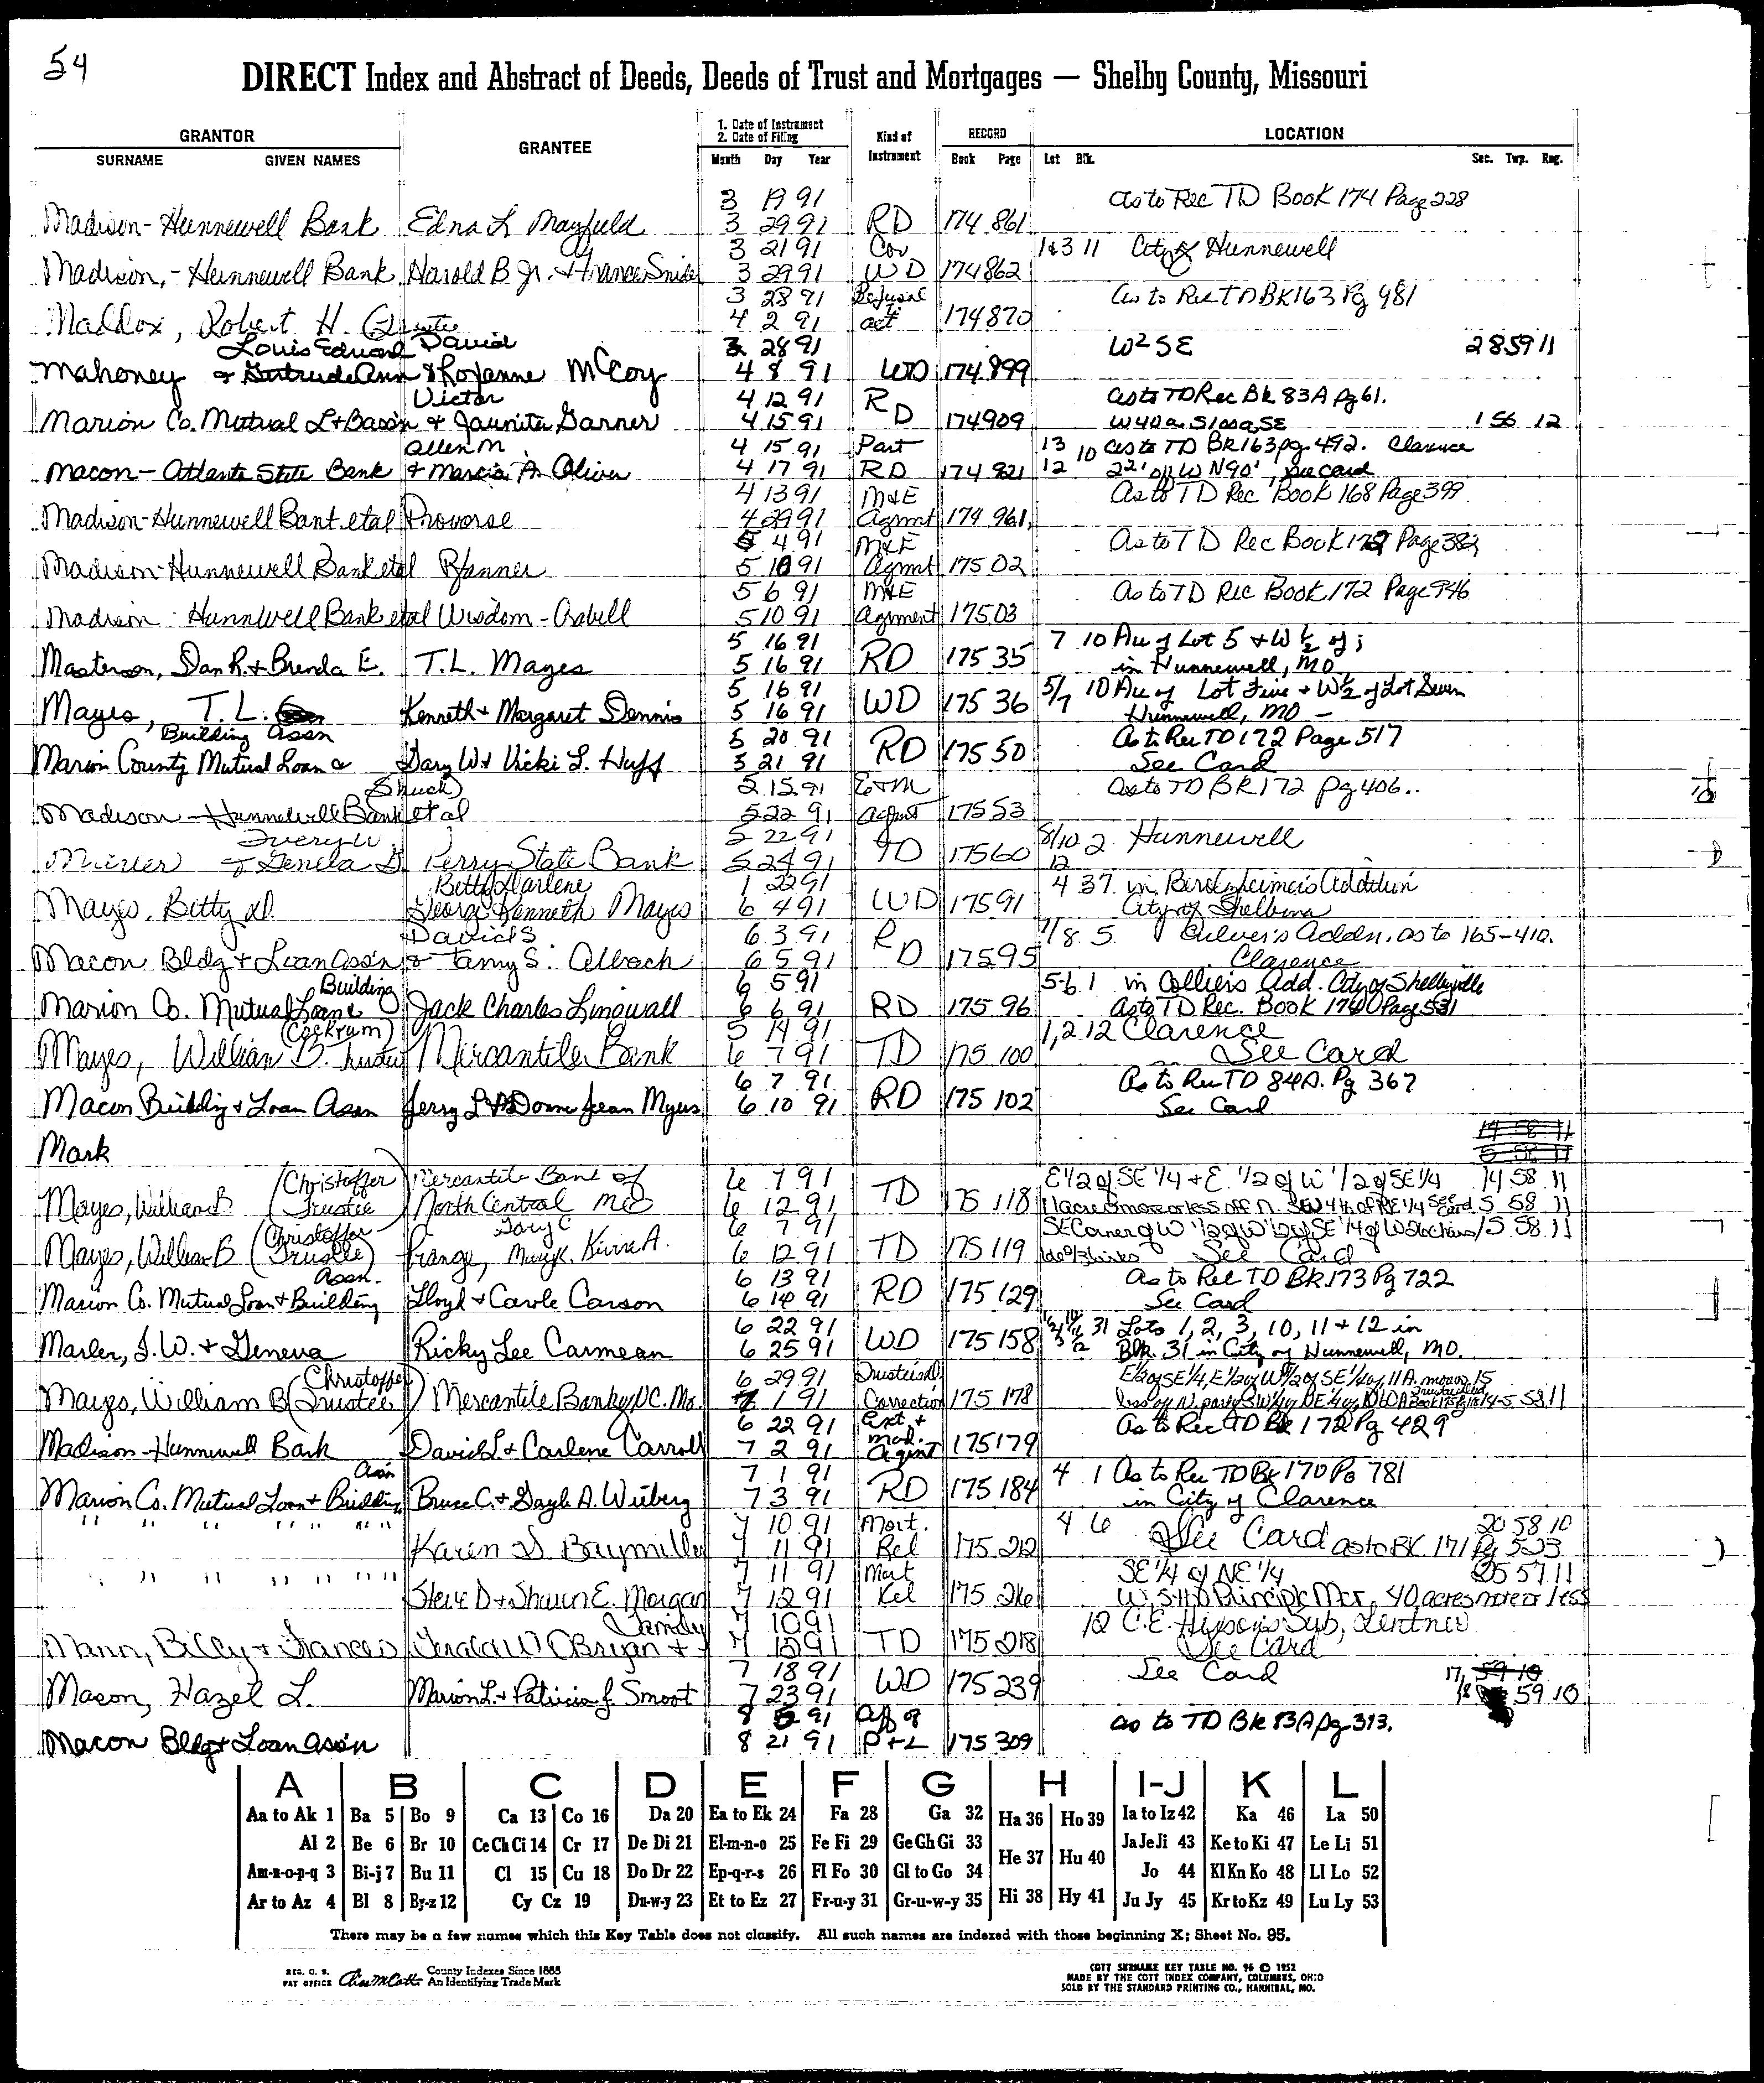 54
DIRECT Index and Abstract of Deeds, Deeds of Trust and Mortgages — Shelby County, Missouri
GRANTOR GRANTEE 1. Date of Instrument 2. Date of Filing Kind of Instrument RECORD LOCATION
SURNAME GIVEN NAMES Month Day Year Book Page Lot Blk. Sec. Twp. Rng.
3 19 91 as to Rec TD Book 174 Page 228
Madison-Hunnewell Bank Edna L Mayfield 3 29 91 RD 174 861
3 21 91 Cov 1&3 11 City of Hunnewell
Madison,-Hunnewell Bank Harold B Jr. & Frances Snider 3 29 91 WD 174 862
3 28 91 Refusal as to Rec TD BK 163 Pg 481
Maddox, Robert H. 4 2 91 to act 174 870
Louis Edward David 3 28 91 W2SE 28 59 11
Mahoney & Gertrude Ann & Roxanne McCoy 4 8 91 WD 174 899
Victor 4 12 91 RD as to TD Rec Bk 83A pg 61.
Marion Co. Mutual L+B assn & Jaunita Garner 4 15 91 174 909 W40a S100a SE 1 56 12
Allen M. 4 15 91 Part 13 10 as to TD BK 163 pg. 492. Clarence
Macon-Atlanta State Bank & Marcia A. Oliver 4 17 91 RD 174 821 12 22' off W N90', see card
4 13 91 M&E As to TD Rec Book 168 Page 399
Madison-Hunnewell Bank etal Provorse 4 29 91 Agmt 174 961
5 4 91 M&E As to TD Rec Book 172 Page 382
Madison-Hunnewell Bank etal Pfanner 5 10 91 Agmt 175 02
5 6 91 M&E As to TD Rec Book 172 Page 946
Madison-Hunnewell Bank etal Wisdom-Asbell 5 10 91 Agment 175 03
5 16 91 7 10 All of Lot 5 & W ½ of ;
Masterson, Dan R. & Brenda E. T.L. Mayes 5 16 91 RD 175 35 in Hunnewell, MO
5 16 91 5/7 10 All of Lot Five & W½ of Lot Seven
Mayes, T.L. Kenneth & Margaret Dennis 5 16 91 WD 175 36 Hunnewell, MO —
Building Assn 5 20 91 As to Rec TD 172 Page 517
Marion County Mutual Loan & Gary W & Vicki L. Huff 5 21 91 RD 175 50 See Card
Shuck 5 15 91 E&M as to TD BK 172 pg 406..
Madison-Hunnewell Bank et al 5 22 91 175 53
5 22 91 8/10 2 Hunnewell
& Genela Perry State Bank 5 24 91 TD 175 60 12
Betty Darlene 1 22 91 4 37. in Addition
Mayes, Betty D. George Kenneth Mayes 6 4 91 WD 175 91 City of Shelbina
David S 6 3 91 7/8 5. Culver's Addn. as to 165-410.
Macon Bldg & Loan Ass'n & Tamy S. Albach 6 5 91 RD 175 95 Clarence
Building 6 5 91 5-6 1 in Colliers Add. City of Shelbyville
Marion Co. Mutual Loan & Jack Charles Lingwall 6 6 91 RD 175 96 As to TD Rec. Book 170 Page 531
(Cockrum) 5 14 91 1,2 12 Clarence
Mayes, William B. Trustee Mercantile Bank 6 7 91 TD 175 100 See Card
6 7 91 As to Rec TD 84A. Pg 367
Macon Building & Loan Assn Jerry L & Donna Jean Myers 6 10 91 RD 175 102 See Card
Mark 14 58 11
5 58 11
(Christoffer Mercantile Bank of 6 7 91 E½ of SE¼ & E. ½ of W ½ of SE¼ 14 58 11
Mayes, William B Trustee North Central Mo 6 12 91 TD 175 118 11 acres more or less off N. SW 4th of NE ¼ See Card 5 58 11
(Christoffer Gary C 6 7 91 SE Corner of W ½ of W ½ of SE ¼ of W 15 58 11
Mayes, William B Trustee) Prange, 6 12 91 TD 175 119 See Card
Assn. 6 13 91 as to Rec TD BK 173 Pg 722
Marion Co. Mutual Loan & Building Lloyd & Carole Carson 6 14 91 RD 175 129 See Card
6 22 91 31 Lots 1, 2, 3, 10, 11 & 12 in
Marler, I.W. & Geneva Ricky Lee Carmean 6 25 91 WD 175 158 Blk. 31 in City of Hunnewell, MO.
(Christoffer 6 29 91 E½ of SE¼, E½ of W½ of SE¼ of 11A. 15
Mayes, William B (Trustee) Mercantile Bank of NC. Mo. 7 1 91 Correction 175 178 14-5 58 11
6 22 91 Ext & As to Rec TD Bk 172 Pg 429
Madison-Hunnewell Bank David L & Carlene Carroll 7 2 91 mod. Agmt 175 179
Assn 7 1 91 4 1 As to Rec TD Bk 170 Pg 781
Marion Co. Mutual Loan & Building Bruce C. & Gayle A. Wieberg 7 3 91 RD 175 184 in City of Clarence
" " " " " " 7 10 91 Mort. 4 6 20 58 10
Karen S Baymiller 7 11 91 Rel 175 212 See Card as to BK. 171 Pg 523
" " " " " " 7 11 91 Mort SE ¼ of NE ¼ 25 57 11
Steve D & Shawn E. Morgan 7 12 91 Rel 175 216 W, 5th Principle Mer, 40 acres more or less
Vandy 7 10 91 12 C.E. Sub, Lentner
Mann, Billy & Frances Gerald W OBryan & 7 12 91 TD 175 218 See Card
7 18 91 See Card 17 59 10
Mason, Hazel L. Marion L. & Patricia J. Smoot 7 23 91 WD 175 239 18 59 10
8 5 91 Aff of as to TD Bk 83A pg 313.
Macon Bldg & Loan Ass'n 8 21 91 P&L 175 309
A B C D E F G H I-J K L
Aa to Ak 1 Ba 5 Bo 9 Ca 13 Co 16 Da 20 Ea to Ek 24 Fa 28 Ga 32 Ha 36 Ho 39 Ia to Iz 42 Ka 46 La 50
Al 2 Be 6 Br 10 Ce Ch Ci 14 Cr 17 De Di 21 El-m-n-o 25 Fe Fi 29 Ge Gh Gi 33 He 37 Hu 40 Ja Je Ji 43 Ke to Ki 47 Le Li 51
Am-n-o-p-q 3 Bi-j 7 Bu 11 Cl 15 Cu 18 Do Dr 22 Ep-q-r-s 26 Fl Fo 30 Gl to Go 34 Jo 44 Kl Kn Ko 48 Ll Lo 52
Ar to Az 4 Bl 8 By-z 12 Cy Cz 19 Du-w-y 23 Et to Ez 27 Fr-u-y 31 Gr-u-w-y 35 Hi 38 Hy 41 Ju Jy 45 Kr to Kz 49 Lu Ly 53
There may be a few names which this Key Table does not classify. All such names are indexed with those beginning X; Sheet No. 95.
REG. U. S. PAT OFFICE County Indexes Since 1888 An Identifying Trade Mark
COTT SURNAME KEY TABLE NO. 96 © 1952
MADE BY THE COTT INDEX COMPANY, COLUMBUS, OHIO
SOLD BY THE STANDARD PRINTING CO., HANNIBAL, MO.